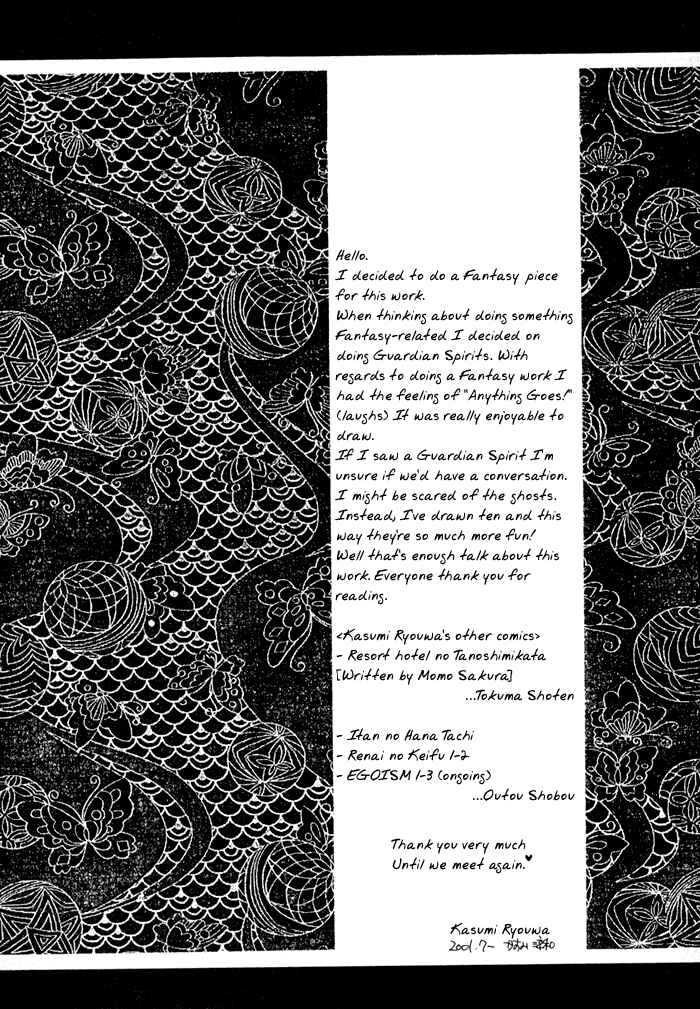 Hello.
I decided to do a Fantasy piece
for this work.
When thinking about doing something
Fantasy-related I decided on
doing Guardian Spirits. With
regards to doing a Fantasy work I
had the feeling of "Anything Goes!"
(laughs) It was really enjoyable to
draw.
If I saw a Guardian Spirit I'm
unsure if we'd have a conversation.
I might be scared of the ghosts.
Instead, I've drawn ten and this
way they're so much more fun!
Well that's enough talk about this
work. Everyone thank you for
reading.
<Kasumi Ryouwa's other comics>
- Resort hotel no Tanoshimikata
[Written by Momo Sakura]
...Tokuma Shoten
- Itan no Hana Tachi
- Renai no Keifu 1-2
- EGOISM 1-3 (ongoing)
...Outou Shobou
Thank you very much
Until we meet again.♥
Kasumi Ryouwa
2001.7~